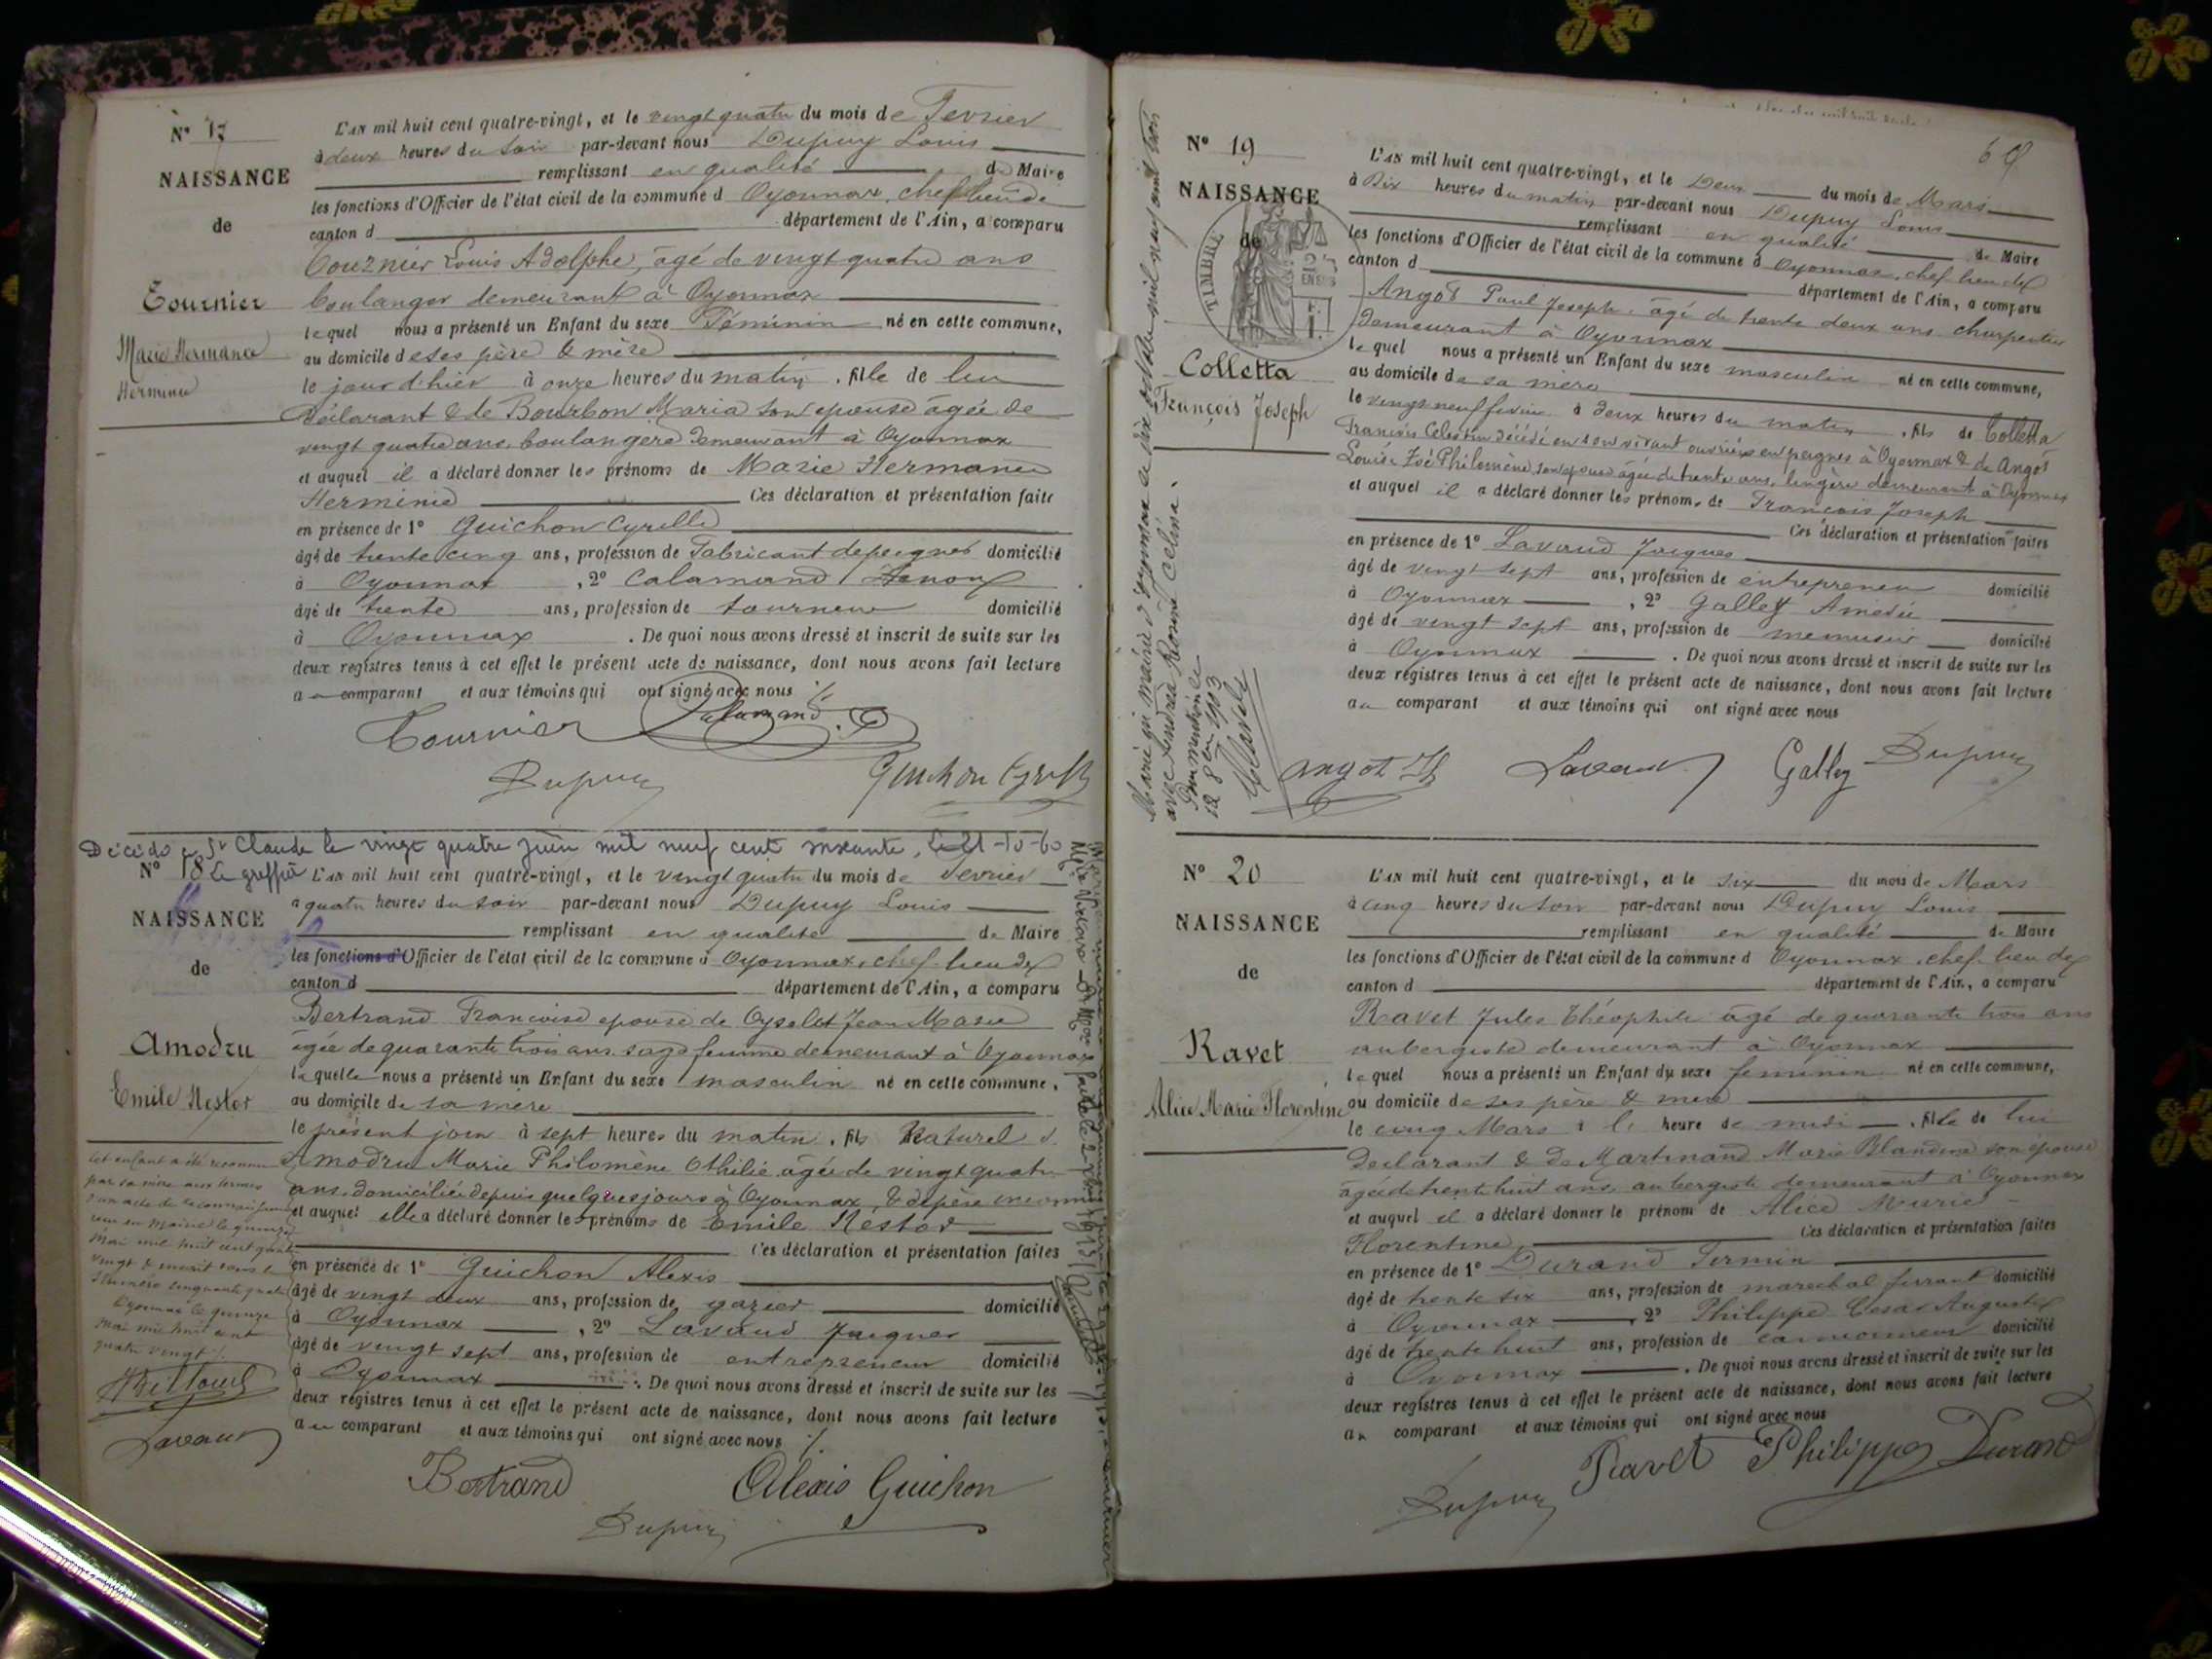 N° 17
NAISSANCE
de
Tournier
Marie Hermance
Herminie
L'AN mil huit cent quatre-vingt, et le vingt quatre du mois de Fevrier
à deux heures du soir par-devant nous Dupuy Louis
remplissant en qualité de Maire
les fonctions d'Officier de l'état civil de la commune d Oyonnax, chef lieu de
canton d département de l'Ain, a comparu
Tournier Louis Adolphe, âgé de vingt quatre ans
boulanger demeurant à Oyonnax
lequel nous a présenté un Enfant du sexe Féminin né en cette commune,
au domicile de ses père & mère
le jour d'hier à onze heures du matin, fille de lui
déclarant & de Bourbon Maria son épouse âgée de
vingt quatre ans, boulangère demeurant à Oyonnax
et auquel il a déclaré donner les prénoms de Marie Hermance
Herminie Ces déclaration et présentation faite
en présence de 1° Guichon Cyrille
âgé de trente cinq ans, profession de Fabricant de peignes domicilié
à Oyonnax, 2° Calamand
âgé de trente ans, profession de tourneur domicilié
à Oyonnax. De quoi nous avons dressé et inscrit de suite sur les
deux registres tenus à cet effet le présent acte de naissance, dont nous avons fait lecture
au comparant et aux témoins qui ont signé avec nous
Tournier Calamand
Dupuy Guichon Cyrille
Décédé à St Claude le vingt quatre juin mil neuf cent soixante, Le 21-10-60
Le greffier
N° 18
NAISSANCE
de
Amodru
Emile Nestor
L'AN mil huit cent quatre-vingt, et le vingt quatre du mois de Fevrier
à quatre heures du soir par-devant nous Dupuy Louis
remplissant en qualité de Maire
les fonctions d'Officier de l'état civil de la commune d Oyonnax, chef-lieu de
canton d département de l'Ain, a comparu
Bertrand Francoise epouse de Oyselet Jean Marie
âgée de quarante trois ans sage femme demeurant à Oyonnax
laquelle nous a présenté un Enfant du sexe masculin né en cette commune,
au domicile de sa mère
le présent jour à sept heures du matin, fils Naturel d
Amodru Marie Philomène Othilie âgée de vingt quatre
ans, domiciliée depuis quelques jours à Oyonnax, & de père inconnu
et auquel elle a déclaré donner les prénoms de Emile Nestor
Ces déclaration et présentation faites
en présence de 1° Guichon Alexis
âgé de vingt deux ans, profession de gazier domicilié
à Oyonnax, 2° Lavaud Jacques
âgé de vingt sept ans, profession de entrepreneur domicilié
à Oyonnax. De quoi nous avons dressé et inscrit de suite sur les
deux registres tenus à cet effet le présent acte de naissance, dont nous avons fait lecture
au comparant et aux témoins qui ont signé avec nous
Cet enfant a été reconnu
par sa mère aux termes
d'un acte de reconnaissance
reçu en mairie le quinze
mai mil huit cent quatre
vingt & inscrit sous le
Numéro cinquante quatre
Oyonnax le quinze
mai mil huit cent
quatre vingt
Lavaud
Bertrand Alexis Guichon
Dupuy
N° 19
NAISSANCE
de
TIMBRE
Colletta
François Joseph
Marié en mairie d'Oyonnax le dix octobre mil neuf cent trois
avec Andréa Reine Céline.
Pour mention le
12 8bre 1903
L'AN mil huit cent quatre-vingt, et le Deux du mois de Mars
à Dix heures du matin par-devant nous Dupuy Louis
remplissant en qualité de Maire
les fonctions d'Officier de l'état civil de la commune d Oyonnax, chef lieu de
canton d département de l'Ain, a comparu
Angot Paul Joseph, âgé de trente deux ans charpentier
demeurant à Oyonnax
lequel nous a présenté un Enfant du sexe masculin né en cette commune,
au domicile de sa mère
le vingt neuf fevrier à deux heures du matin, fils de Colletta
Francois Celestin décédé en son vivant ouvrier en peignes à Oyonnax & de Angot
Louise Zoé Philomène son épouse âgée de trente ans, lingère demeurant à Oyonnax
et auquel il a déclaré donner les prénoms de Francois Joseph
Ces déclaration et présentation faites
en présence de 1° Lavaud Jacques
âgé de vingt sept ans, profession de entrepreneur domicilié
à Oyonnax, 2° Galley Amedée
âgé de vingt sept ans, profession de menuisier domicilié
à Oyonnax. De quoi nous avons dressé et inscrit de suite sur les
deux registres tenus à cet effet le présent acte de naissance, dont nous avons fait lecture
au comparant et aux témoins qui ont signé avec nous
Angot Lavaud Galley Dupuy
N° 20
NAISSANCE
de
Ravet
Alice Marie Florentine
L'AN mil huit cent quatre-vingt, et le six du mois de Mars
à cinq heures du soir par-devant nous Dupuy Louis
remplissant en qualité de Maire
les fonctions d'Officier de l'état civil de la commune d Oyonnax, chef-lieu de
canton d département de l'Ain, a comparu
Ravet Jules Théophile âgé de quarante trois ans
aubergiste demeurant à Oyonnax
lequel nous a présenté un Enfant du sexe feminin né en cette commune,
au domicile de ses père & mère
le cinq Mars à l' heure de midi, fille de lui
declarant & de Martinand Marie Blandine son épouse
âgée de trente huit ans, aubergiste demeurant à Oyonnax
et auquel il a déclaré donner le prénom de Alice Marie
Florentine, Ces déclaration et présentation faites
en présence de 1° Durand Firmin
âgé de trente six ans, profession de marechal ferrant domicilié
à Oyonnax, 2° Philippe Cesar Auguste
âgé de trente huit ans, profession de camionneur domicilié
à Oyonnax. De quoi nous avons dressé et inscrit de suite sur les
deux registres tenus à cet effet le présent acte de naissance, dont nous avons fait lecture
au comparant et aux témoins qui ont signé avec nous
Ravet Philippe Durand
Dupuy